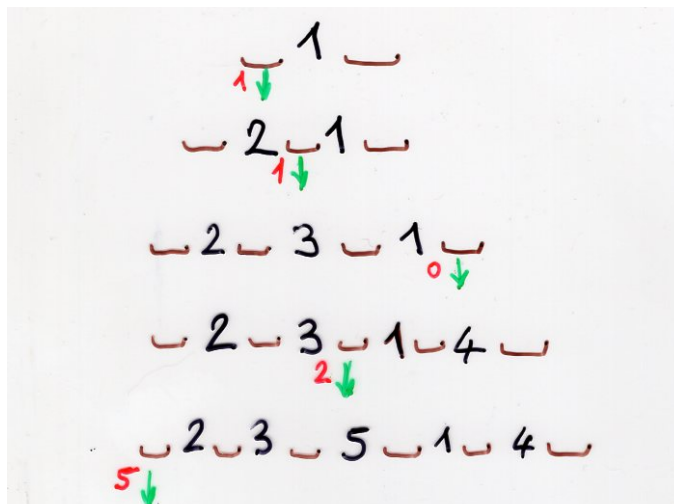 1
1
2 1
1
2 3 1
0
2 3 1 4
2
2 3 5 1 4
5